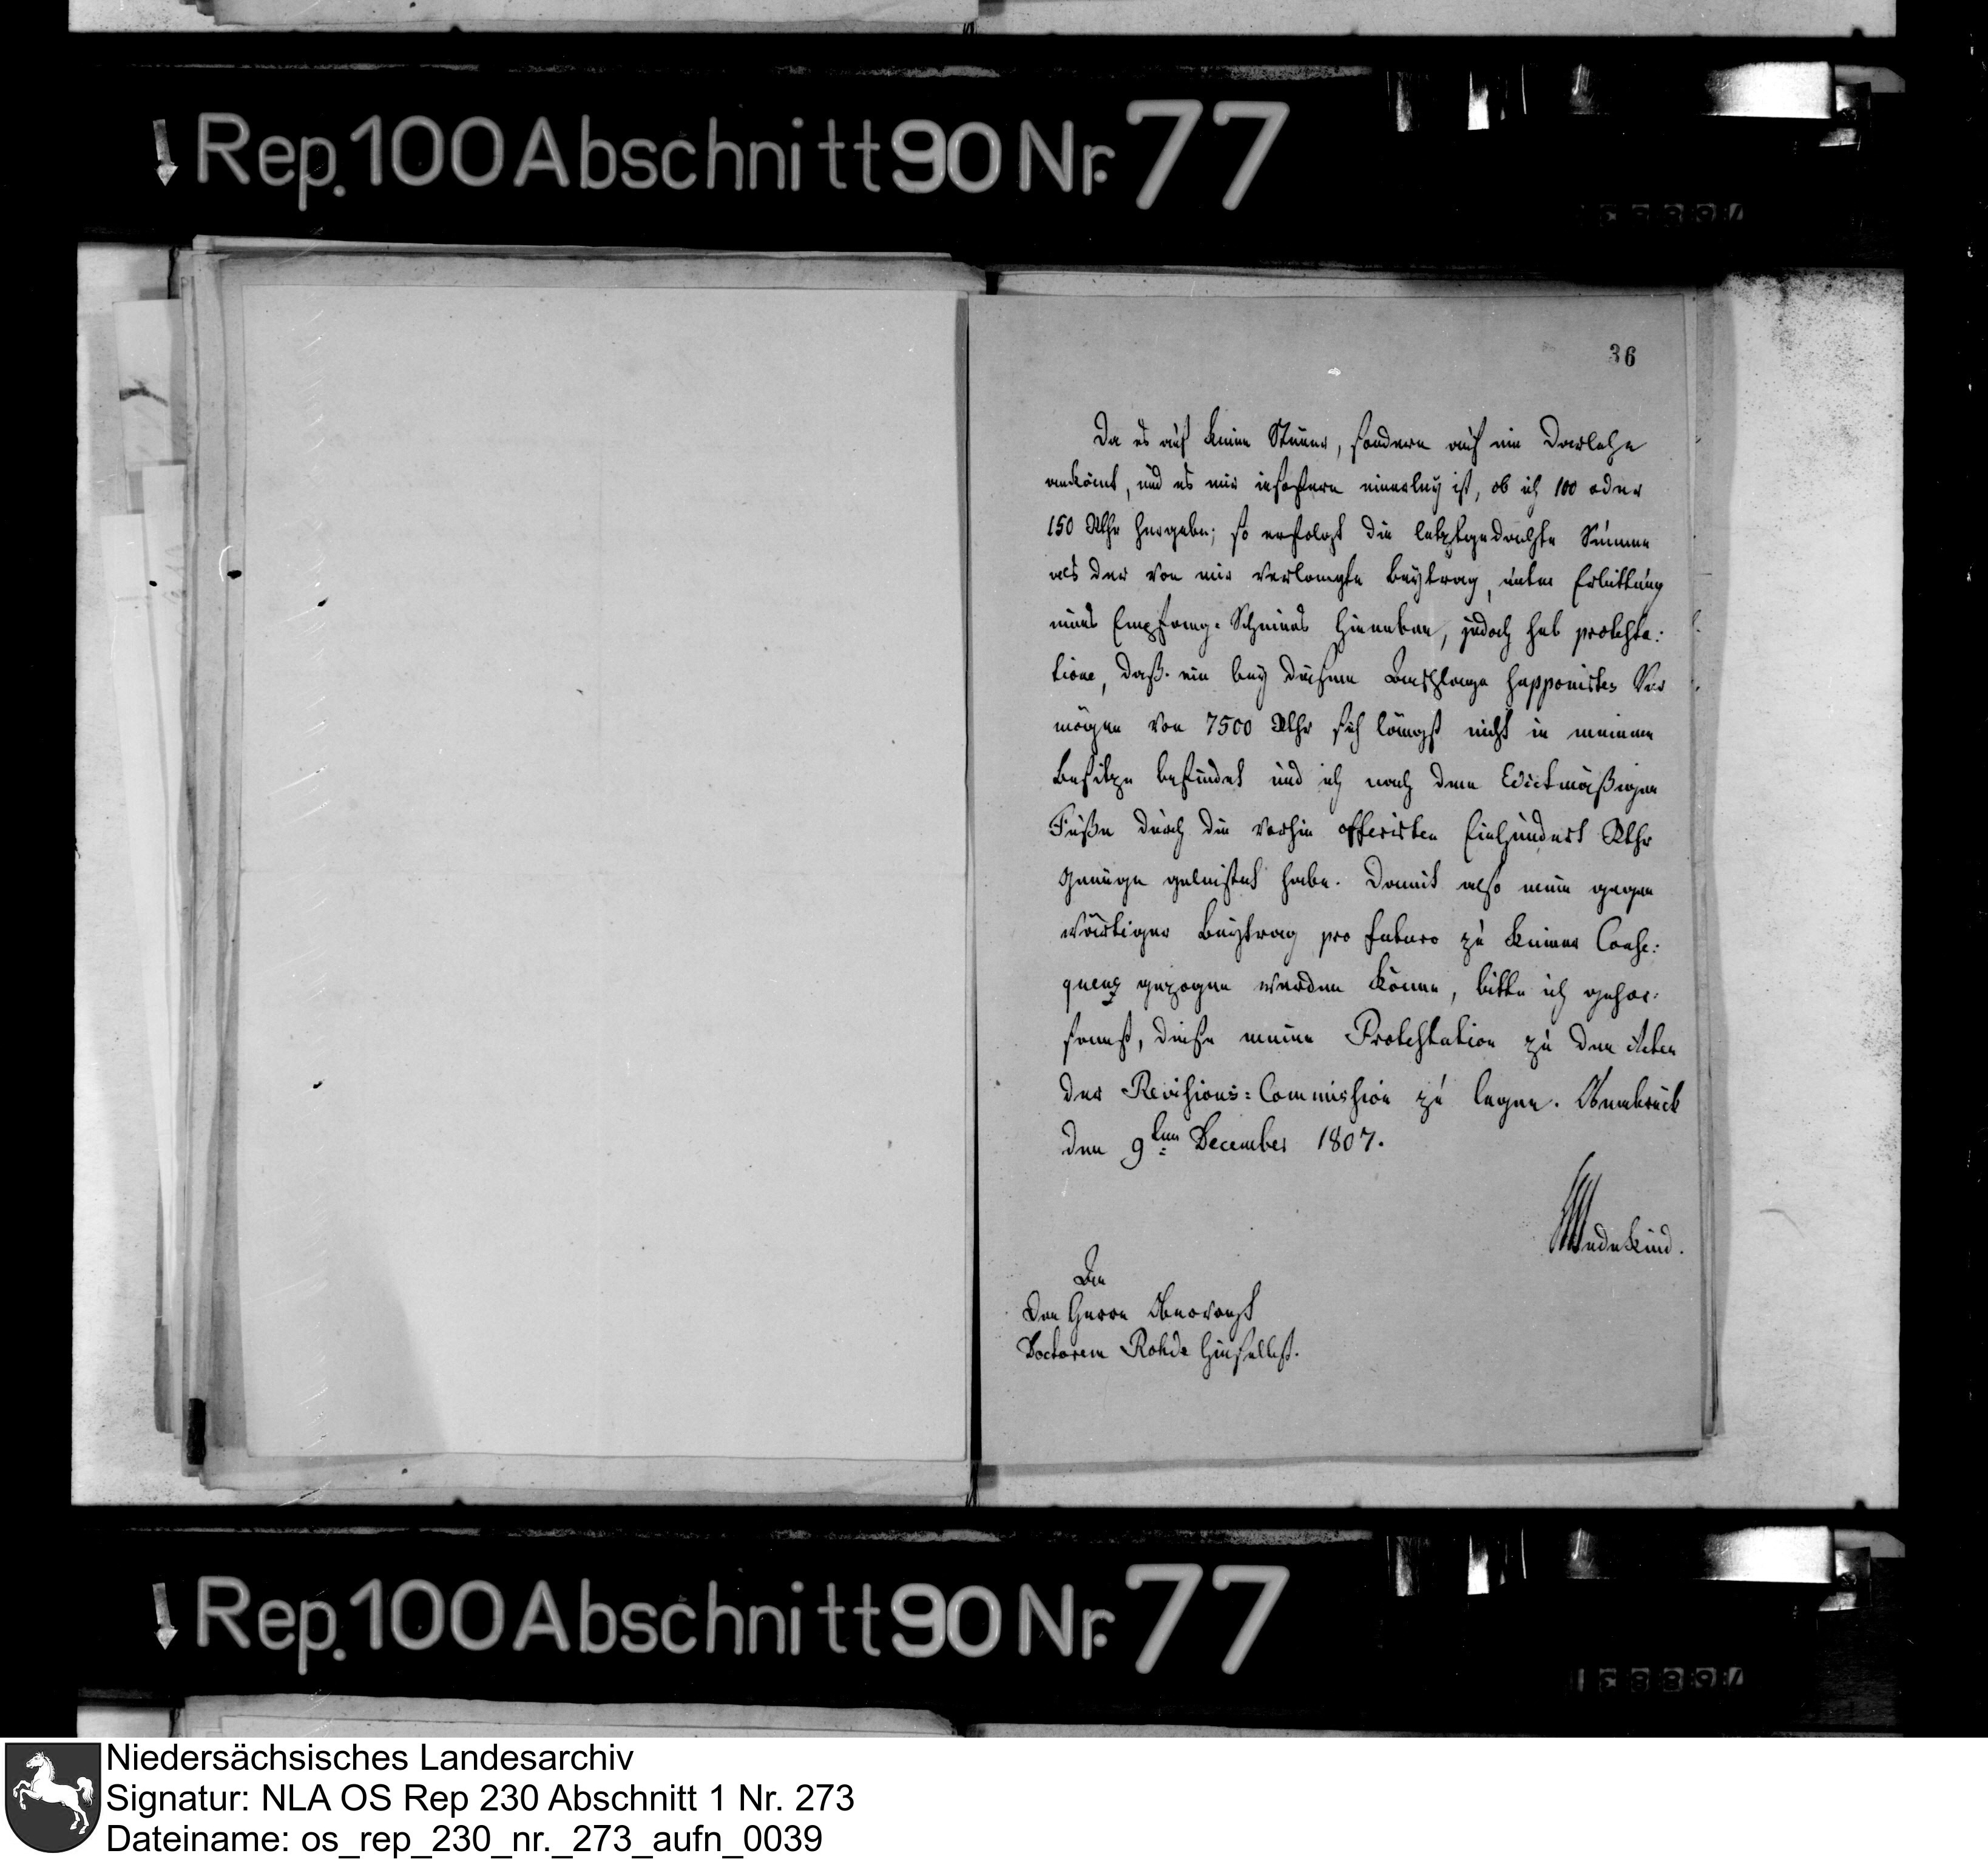 Rep. 100 Abschnitt 90 Nr. 77
36
Da es auf keine Steuer, sondern auf ein Darlehn
ankömt, und es mir insofern einerley ist, ob ich 100 oder
150 Rthr hergebe; so erfolgt die letztgedachte Summe
als der von mir verlangte Beytrag, unter Erbittung
eines Empfang-Scheines hieneben, jedoch sub protesta:
tione, daß ein bey diesem Anschlage supponirtes Ver
mögen von 7500 Rthr sich längst nicht in meinem
Besitze befindet und ich nach dem Edictmäßigen
Fuße durch die vorhin offerirten Einhundert Rthr
Genüge geleistet habe. Damit also mein gegen
wärtiger Beytrag pro futuro zu keiner Conse:
quenz gezogen werden könne, bitte ich gehor:
samst, diese meine Protestation zu den Acten
der Revisions=Commission zu legen. Osnabrück
den 9ten December 1807.
Wedekind.
An
den Herrn
Doctorem Rohde hieselbst.
Rep. 100 Abschnitt 90 Nr. 77
Niedersächsisches Landesarchiv
Signatur: NLA OS Rep 230 Abschnitt 1 Nr. 273
Dateiname: os_rep_230_nr._273_aufn_0039